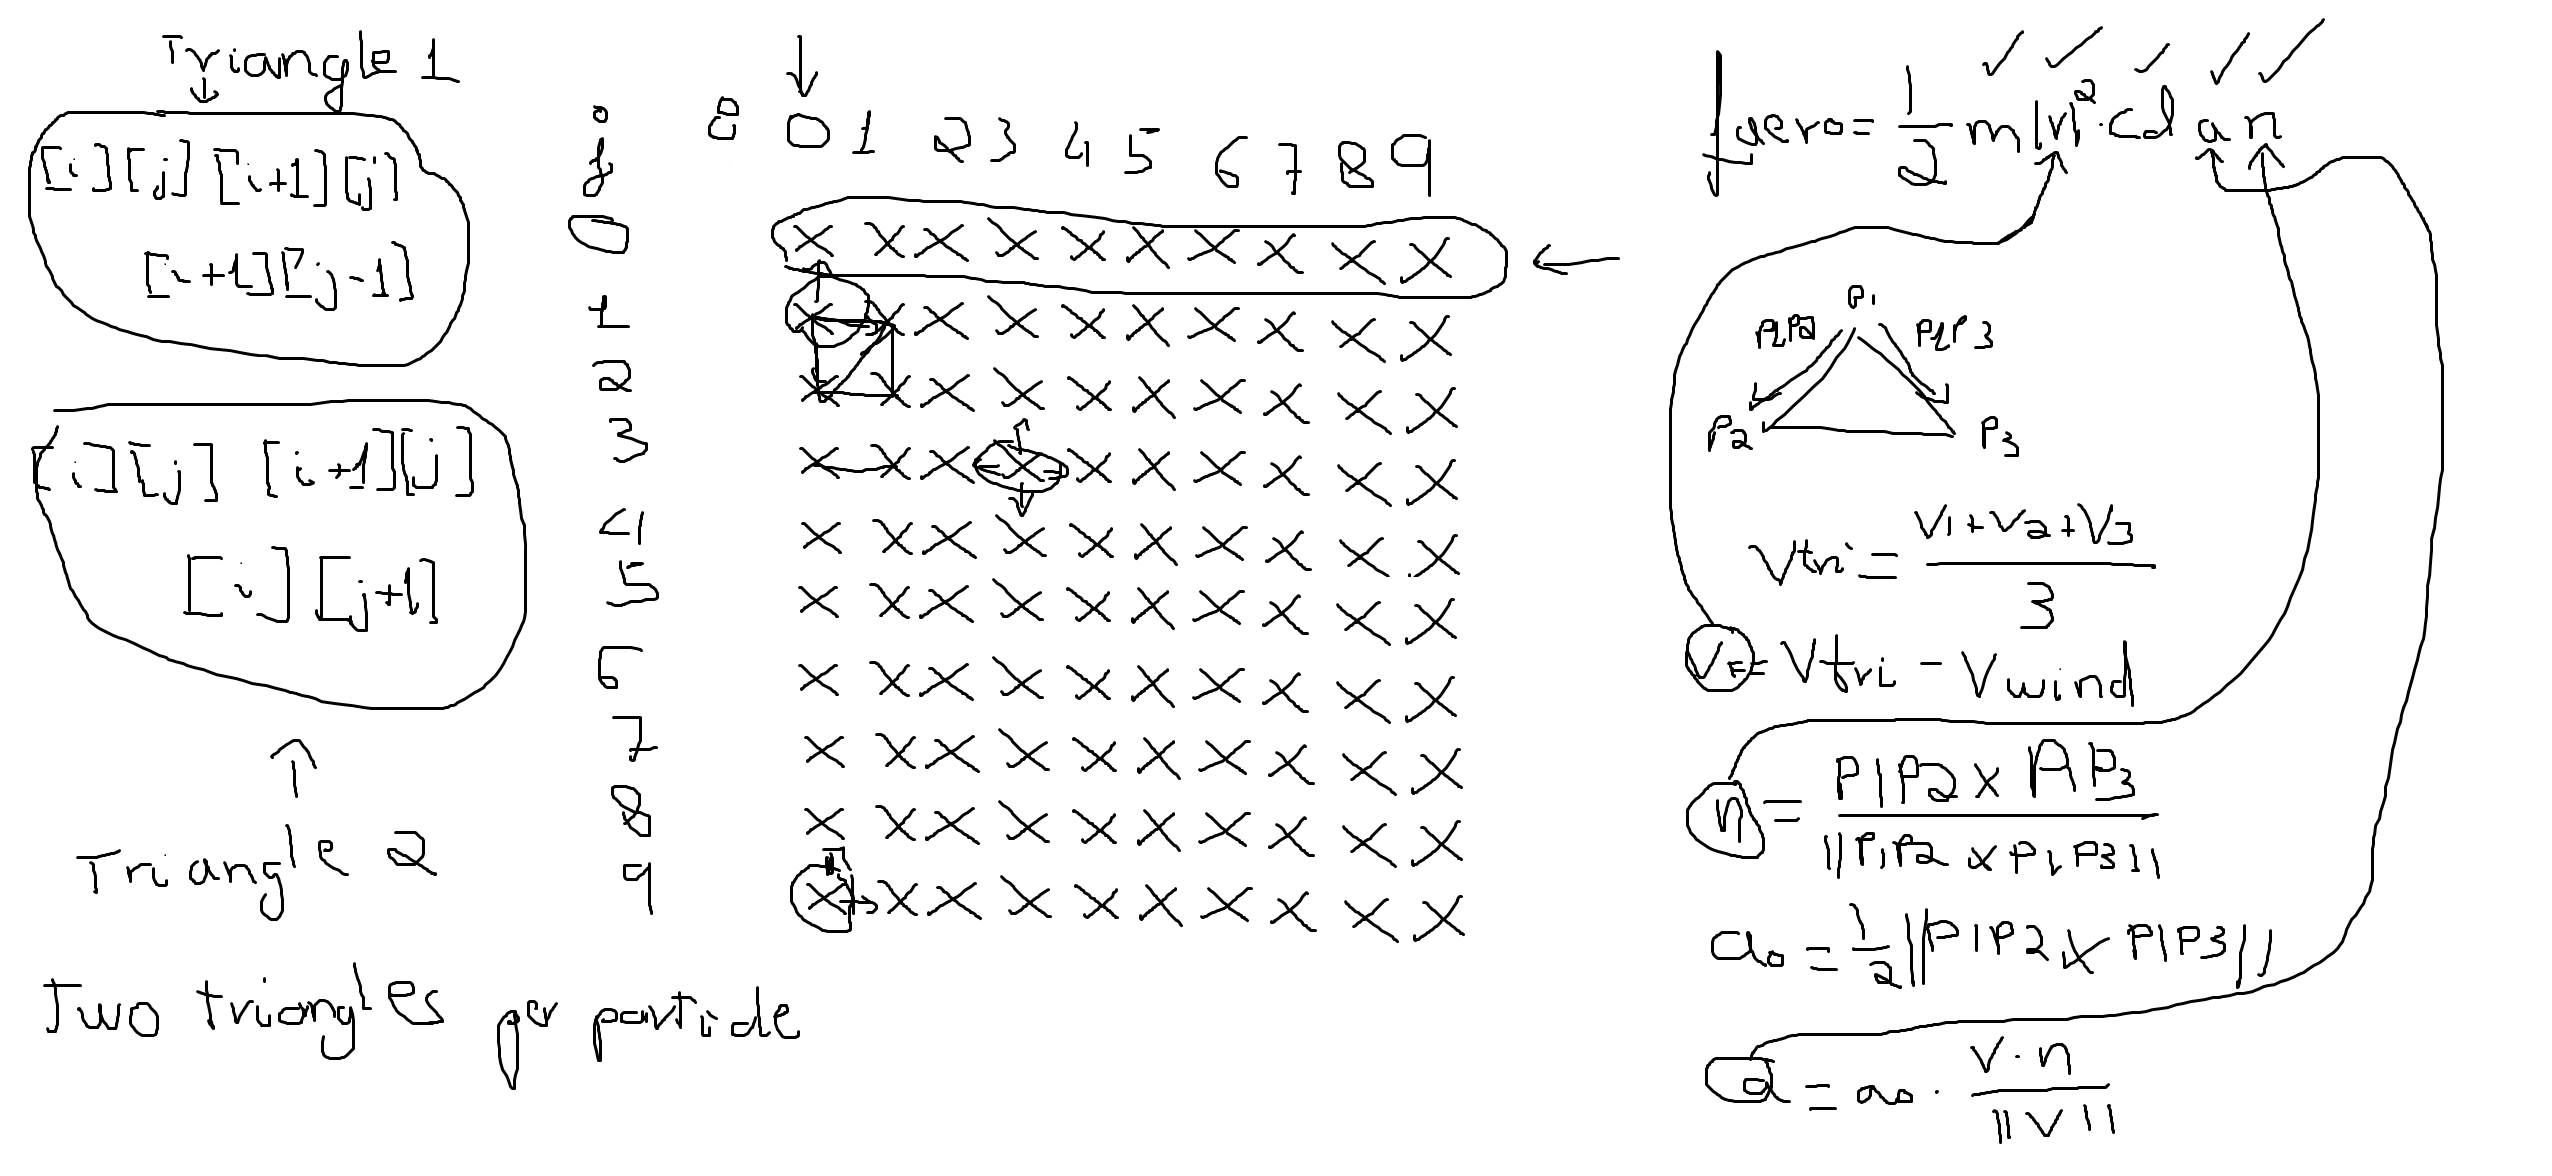 Triangle 1
[i][j] [i+1][j]
[i+1][j-1]
[i][j] [i+1][j]
[i][j+1]
Triangle 2
Two triangles per particle
i 0 1 2 3 4 5 6 7 8 9
j
0 X X X X X X X X X X
1 X X X X X X X X X X
2 X X X X X X X X X X
3 X X X X X X X X X X
4 X X X X X X X X X X
5 X X X X X X X X X X
6 X X X X X X X X X X
7 X X X X X X X X X X
8 X X X X X X X X X X
9 X X X X X X X X X X
faero = 1/2 m|v|² · cd a n
P1
P1P2 P1P3
P2 P3
Vtri = V1+V2+V3 / 3
Vr = Vtri - Vwind
n = P1P2 x P1P3 / ||P1P2 x P1P3||
a0 = 1/2 ||P1P2 x P1P3||
a = a0 · V·n / ||V||